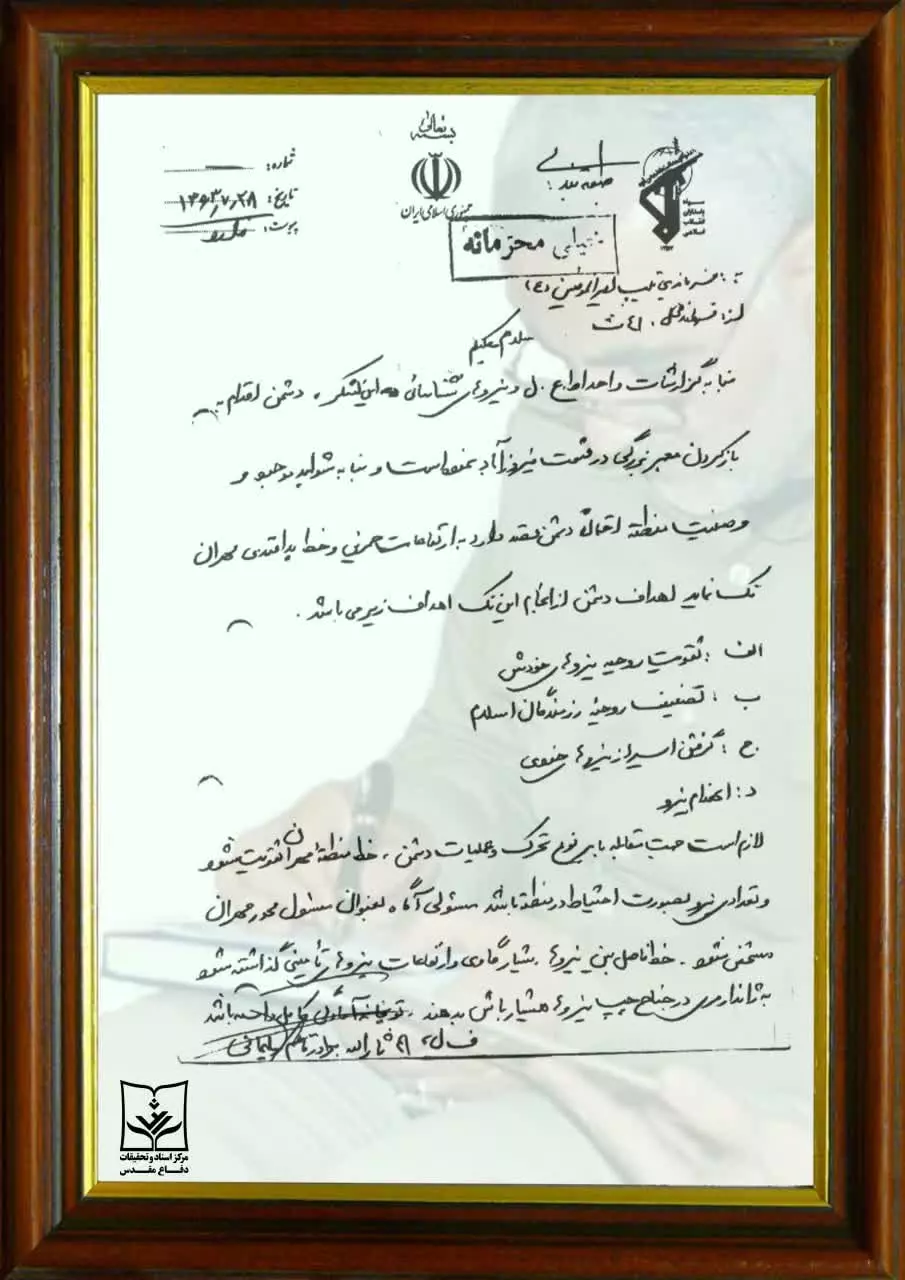 بسمه تعالی
جمهوری اسلامی ایران
شماره:
تاریخ: ۱۳۶۳/۷/۲۸
پیوست: ندارد
طبقه بندی:
سپاه
پاسداران
انقلاب
اسلامی
خیلی محرمانه
به: فرماندهی تیپ امیرالمؤمنین (ع)
از: فرماندهی ل ۴۱ ث
سلام علیکم
بنا به گزارشات واحد اطلاع ل و نیروهای شناسائی این لشکر، دشمن اقدام به
باز کردن معبر بزرگی در قسمت فیروزآباد نموده است و بنا به شواهد موجود و
وضعیت منطقه احتمالا دشمن قصد دارد به ارتفاعات حمرین و خط پدافندی مهران
تک نماید اهداف دشمن از انجام این تک اهداف زیر می باشد.
الف: تقویت روحیه نیروهای خودش
ب: تضعیف روحیه رزمندگان اسلام
ج: گرفتن اسیر از نیروهای خودی
د: انهدام نیرو
لازم است جهت مقابله با هر نوع تحرک و عملیات دشمن، خط منطقه مهران تقویت شود
و تعدادی نیرو بصورت احتیاط در منطقه باشد مسئولی آگاه بعنوان مسئول محور مهران
مشخص شود. خط فاصل بین نیروها، شیار گاوی و ارتفاعات نیروهای تأمینی گذاشته شود
به ژاندارمری در جناح چپ نیروها هشیار باش بدهند. توپخانه آمادگی کامل داشته باشد
ف ل ۴۱ ثارالله برادر قاسم سلیمانی
مرکز اسناد و تحقیقات
دفاع مقدس